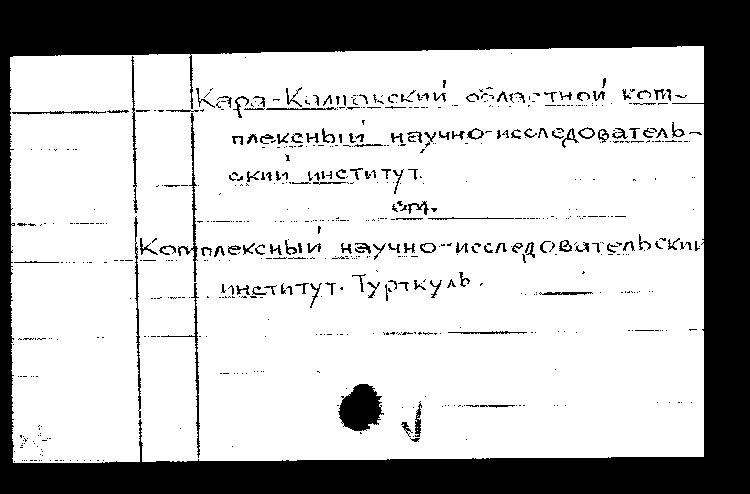 Кара-Калпакский областной ком-
плексный научно-исследователь-
ский институт.
см.
Комплексный научно-исследовательский
институт. Турткуль.